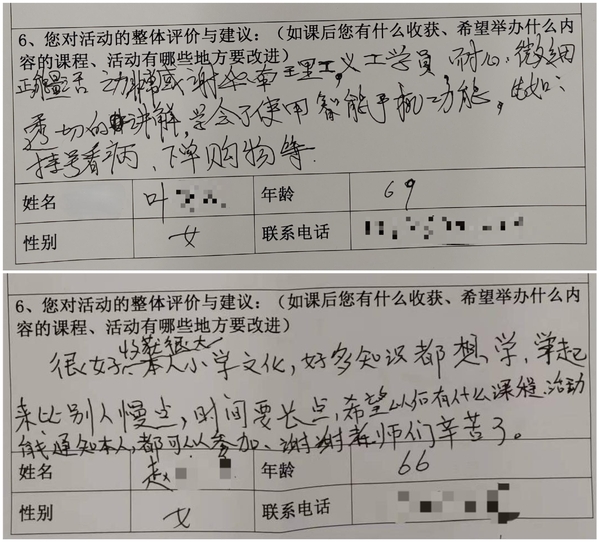 6、您对活动的整体评价与建议：（如课后您有什么收获、希望举办什么内
容的课程、活动有哪些地方要改进）
活动非常感谢 理工义工学员，耐心、微细
透切的讲解，学会了使用智能手机功能，如：
挂号看病、下单购物等.
姓名 叶 年龄 69
性别 女 联系电话
6、您对活动的整体评价与建议：（如课后您有什么收获、希望举办什么内
容的课程、活动有哪些地方要改进）
收获很大
很好，本人小学文化，好多知识都想学，学起
来比别人慢点，时间要长点，希望以后有什么课程.活动
能通知本人，都可以参加、谢谢老师们辛苦了。
姓名 赵 年龄 66
性别 女 联系电话